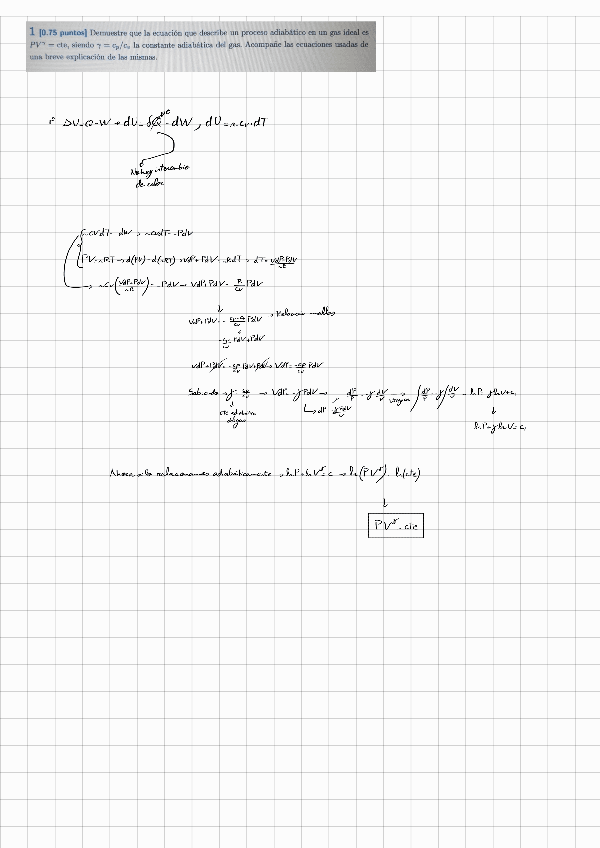 1 [0.75 puntos] Demuestre que la ecuación que describe un proceso adiabático en un gas ideal es
PV^γ = cte, siendo γ = c_p/c_v la constante adiabática del gas. Acompañe las ecuaciones usadas de
una breve explicación de las mismas.
ΔU = Q - W → dU = δQ - dW, dU = n·cv·dT
No hay intercambio
de calor
n·cv·dT = -dW → n·cv·dT = -PdV
PV = nRT → d(PV) = d(nRT) → VdP + PdV = nRdT → dT = (VdP + PdV)/nR
→ n·cv((VdP + PdV)/nR) = -PdV → VdP + PdV = -(R/cv) PdV
↓
VdP + PdV = -((cp - cv)/cv) PdV → Relación
-(cp/cv) PdV + PdV
VdP + PdV = -(cp/cv) PdV + PdV → VdP = -(cp/cv) PdV
Sabiendo γ = cp/cv → VdP = -γPdV → dP/P = -γ dV/V → ∫dP/P = -γ∫dV/V = ln P = -γ ln V + c,
cte adiabática
del gas
dP = -γPdV/V
↓
ln P + γ ln V = c,
Ahora si lo relacionamos adiabáticamente → ln P + ln V^γ = c → ln(PV^γ) = ln(cte)
↓
PV^γ = cte